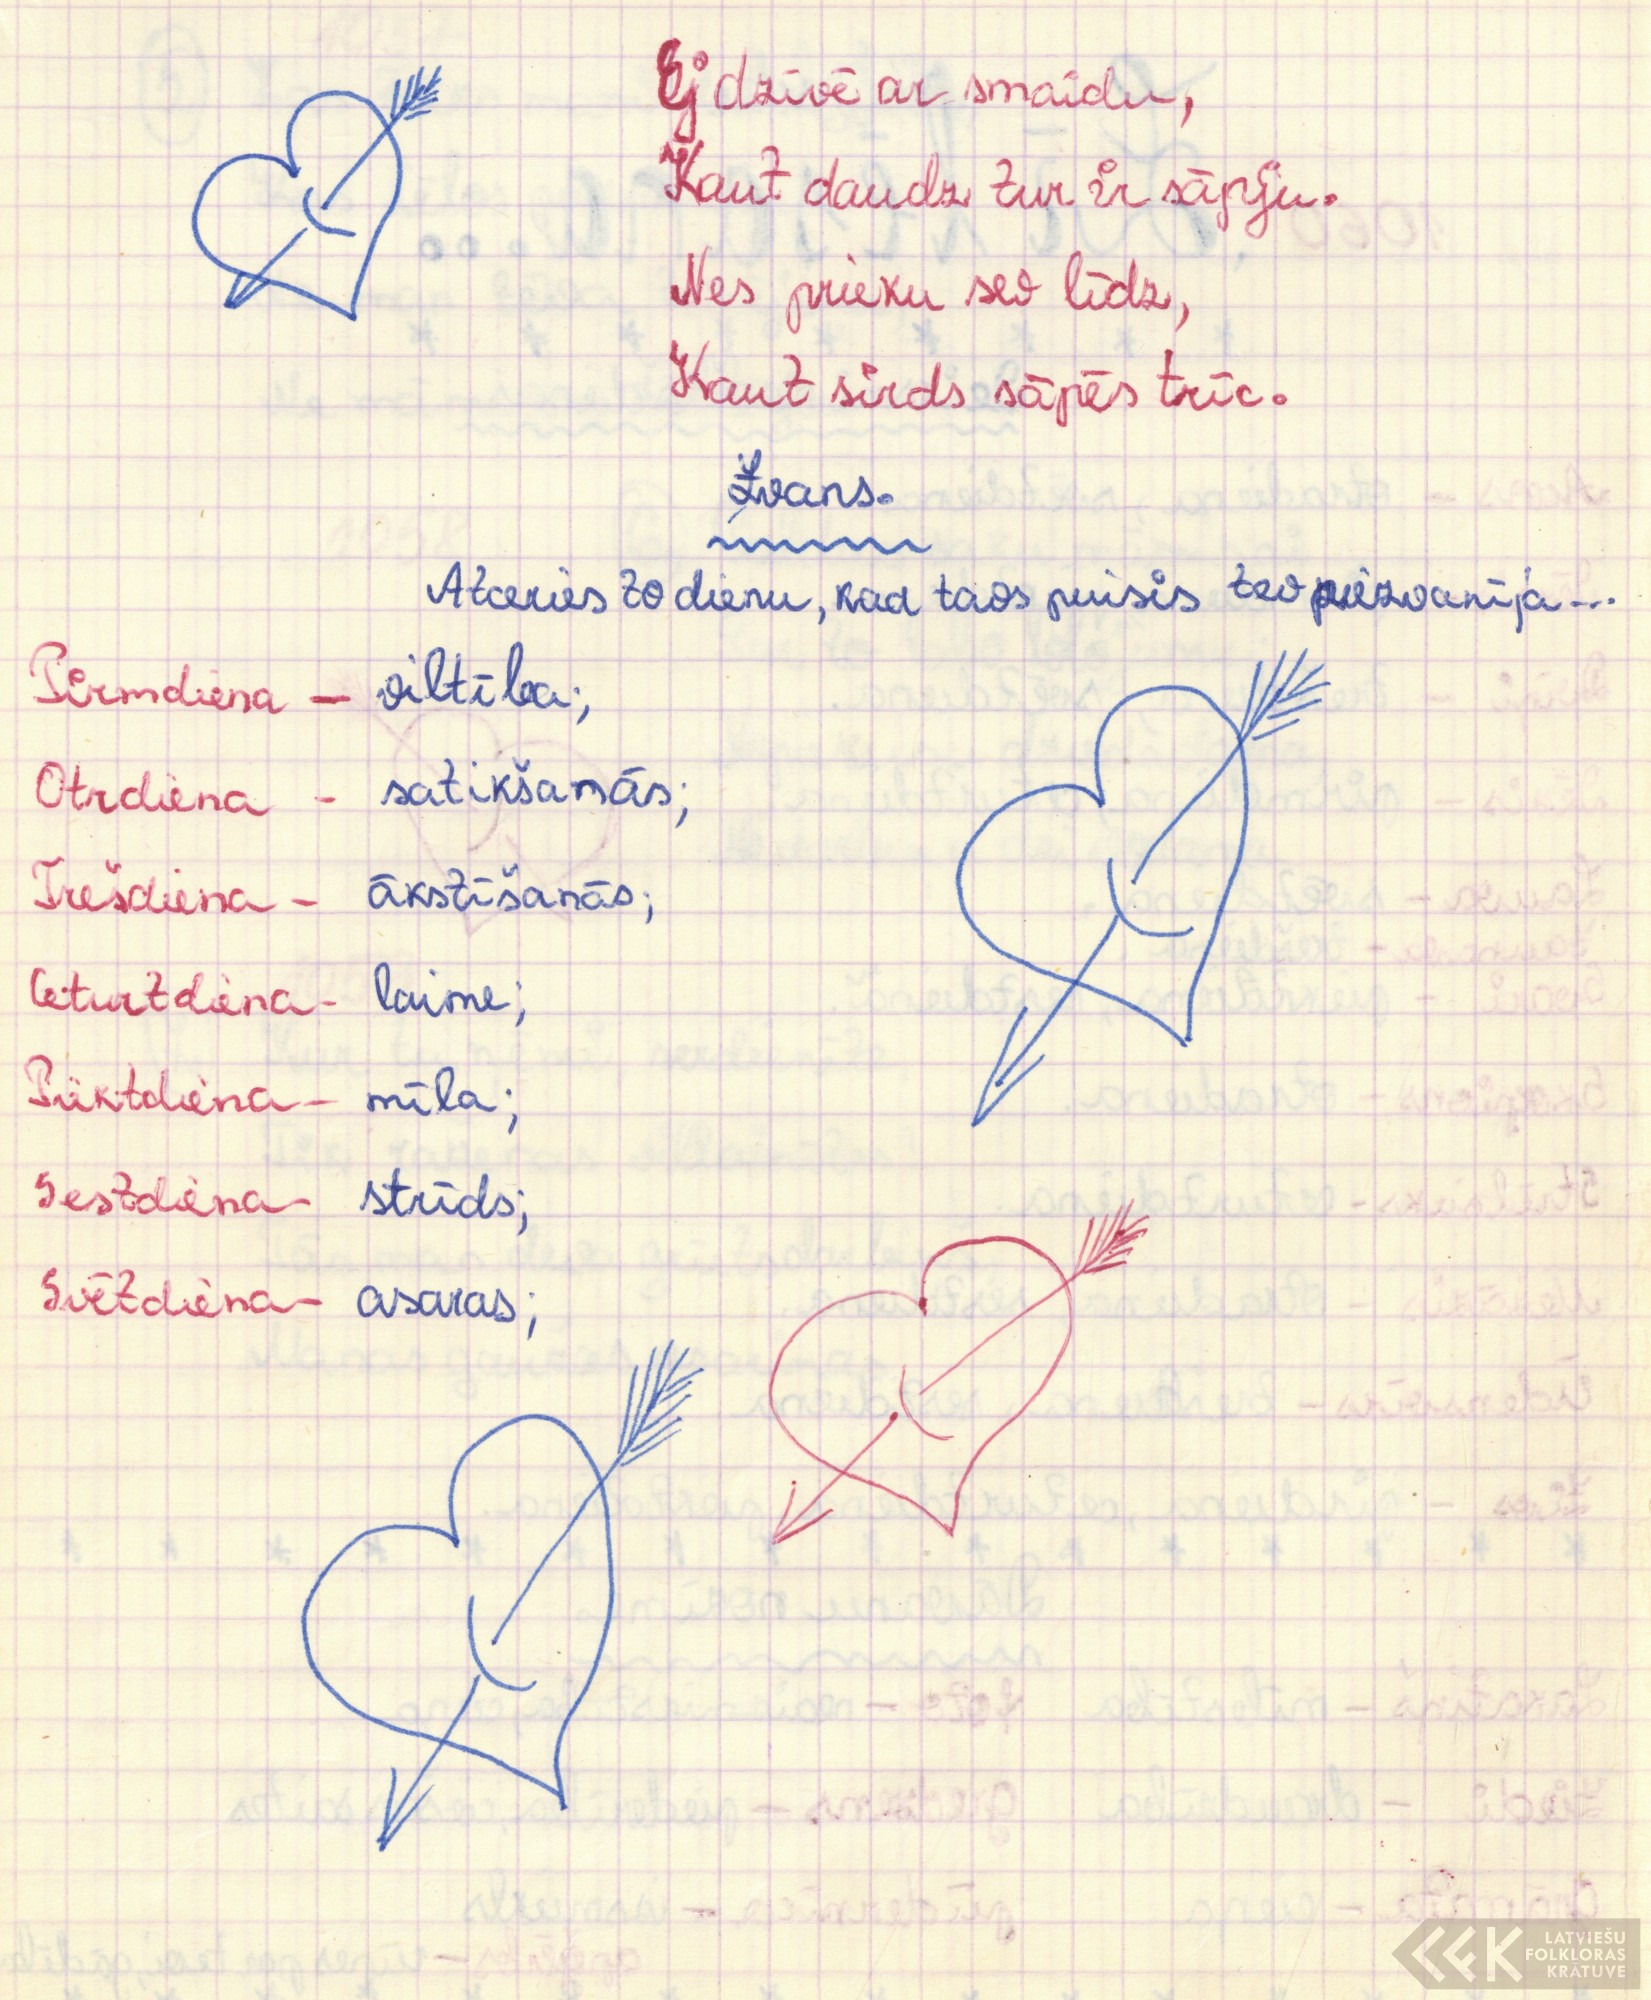 Ej dzīvē ar smaidu,
Kaut daudz tur ir sāpju.
Nes prieku sev līdz,
Kaut sirds sāpēs trīc.
Zvans.
Atceries to dienu, kad tavs puisis tev piezvanīja...
Pirmdiena – viltība;
Otrdiena - satikšanās;
Trešdiena - ākstīšanās;
Ceturtdiena - laime;
Piektdiena - mīla;
Sestdiena - strīds;
Svētdiena - asaras;
LATVIEŠU
FOLKLORAS
KRĀTUVE